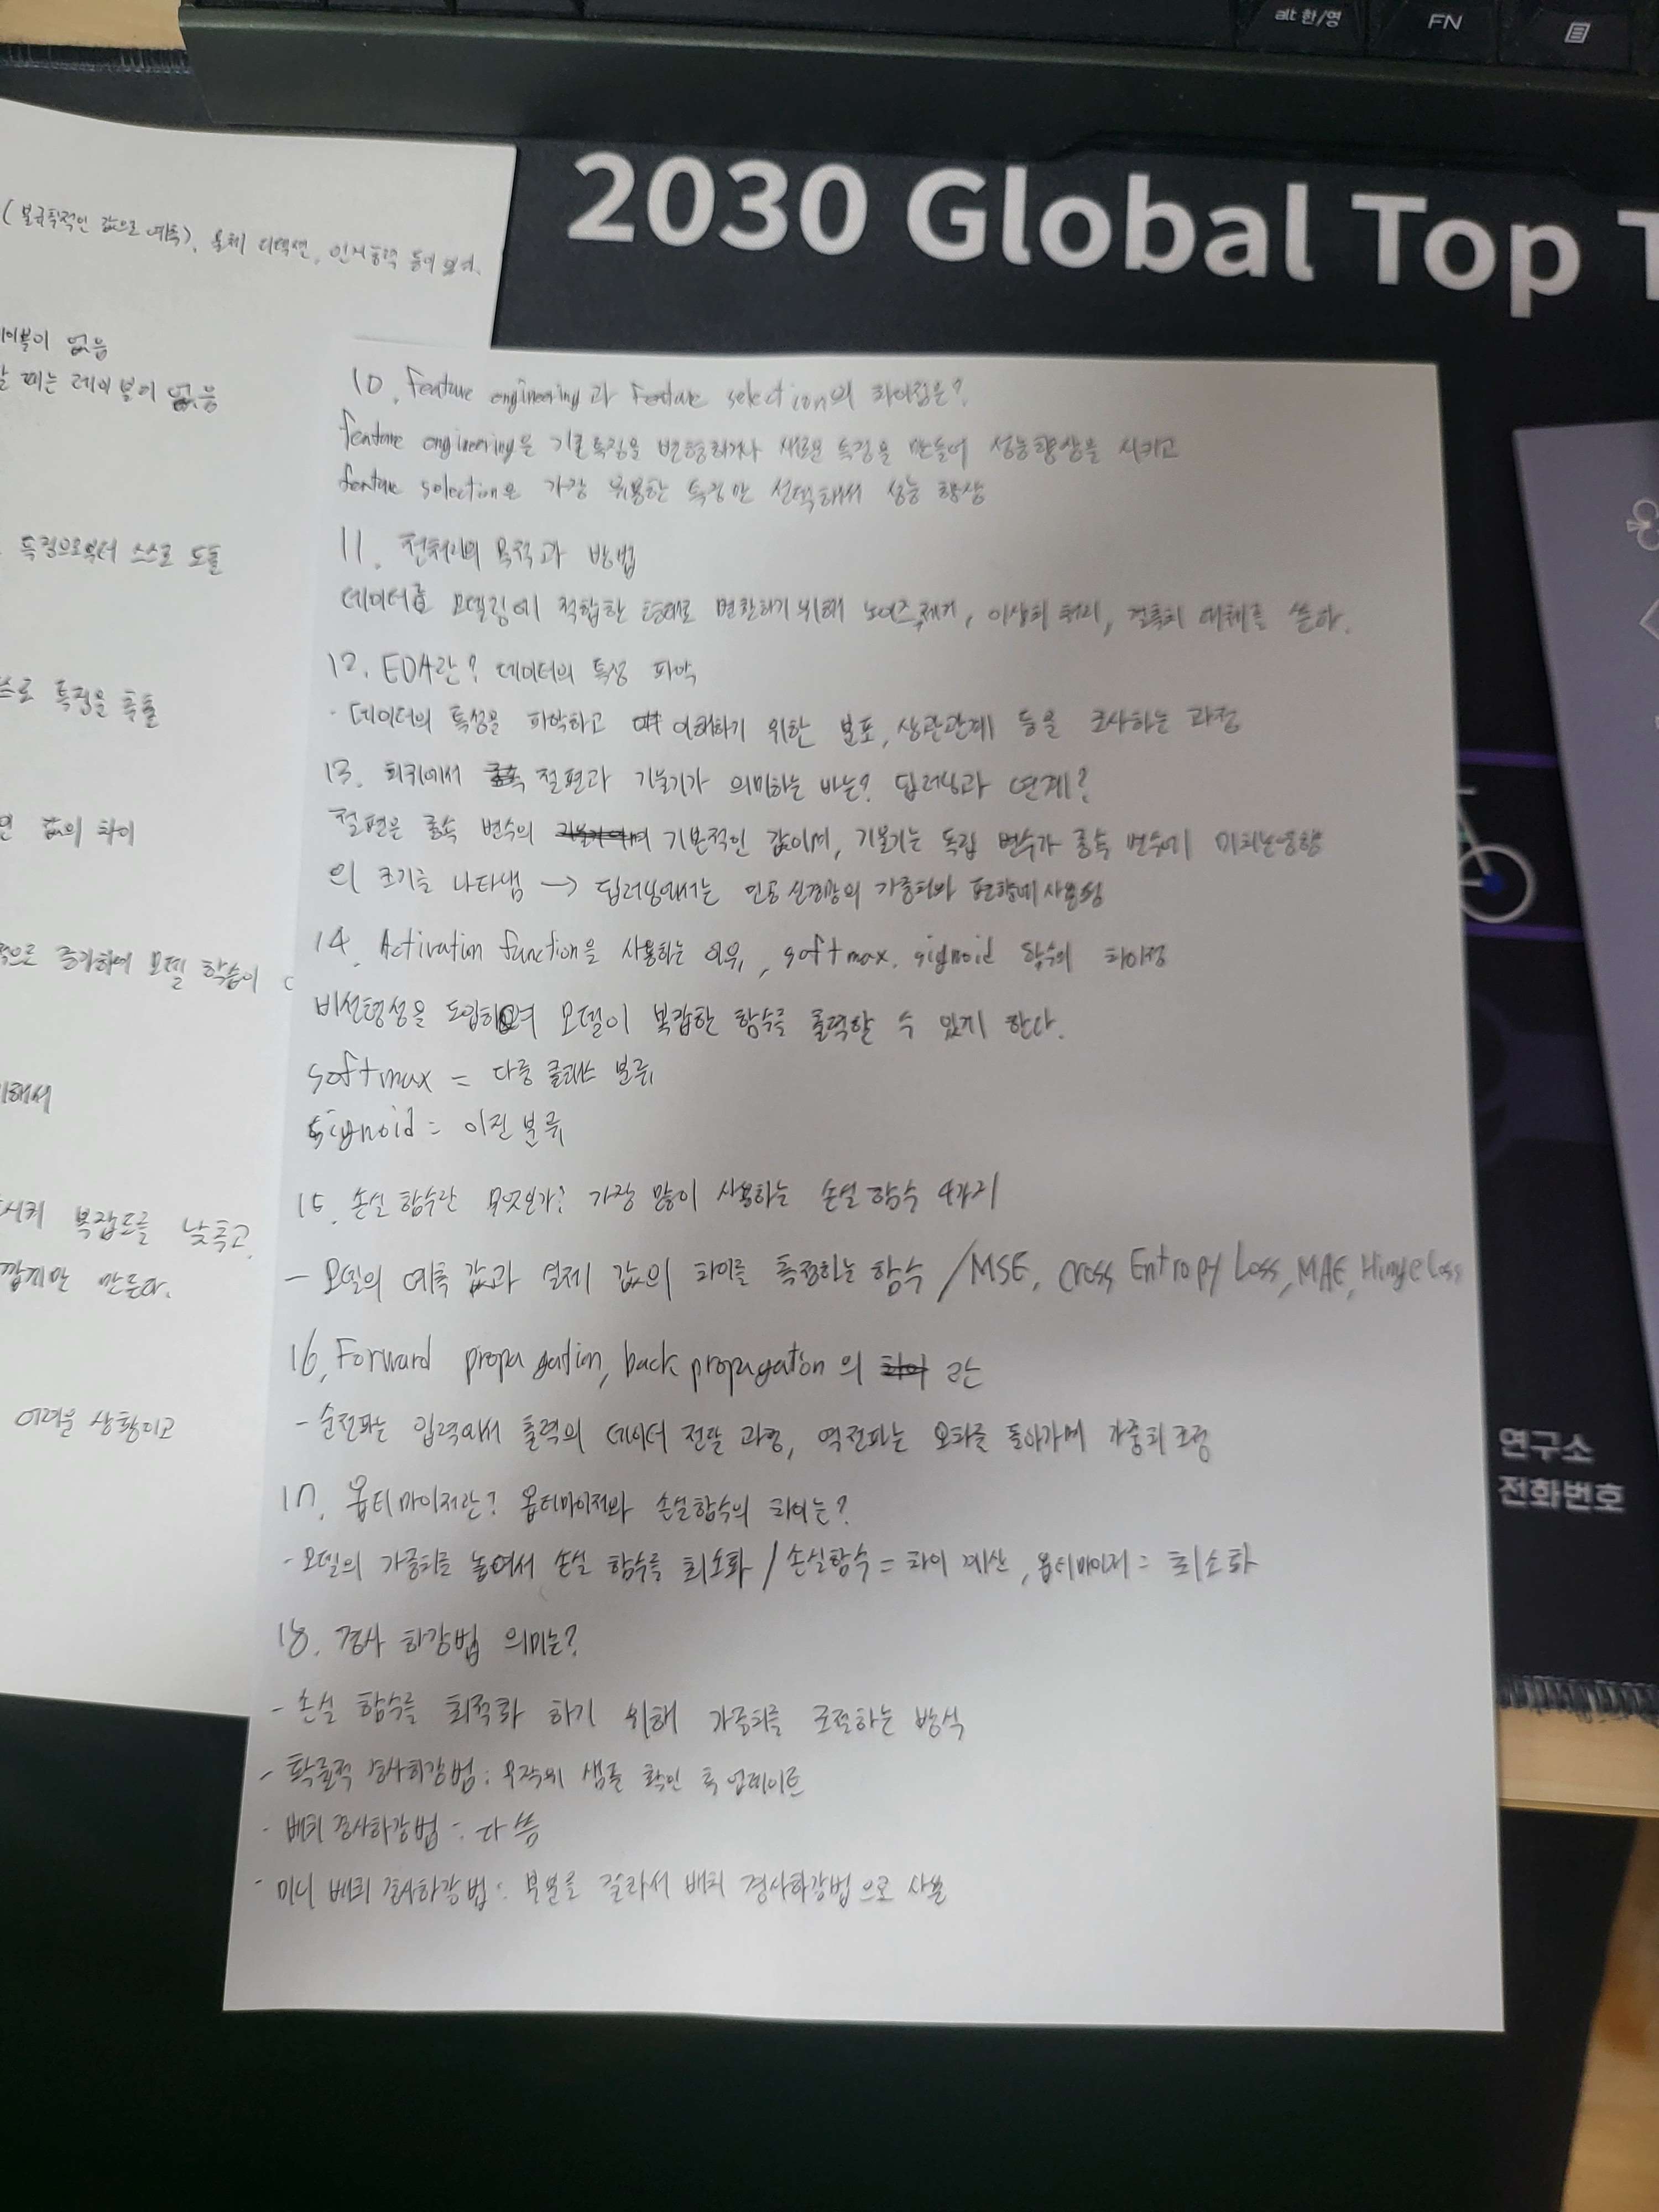 alt 한/영
FN
2030 Global Top T
(불규칙적인 값으로 예측), 물체 디텍션, 인지능력 등이 보여.
이블이 없음
때는 레이블이 없음
특징으로부터 스스로 도출
스로 특징을 추출
값의 차이
적으로 증가하여 모델 학습이
위해서
시켜 복잡도를 낮추고,
깝게만 만든다.
어려운 상황이고
10. Feature engineering과 Feature selection의 차이점은?
feature engineering은 기존 특징을 변형하거나 새로운 특징을 만들어 성능향상을 시키고
feature selection은 가장 유용한 특징만 선택해서 성능 향상
11. 전처리의 목적과 방법
데이터를 모델링에 적합한 형태로 변환하기 위해 노이즈 제거, 이상치 처리, 결측치 대체를 쓴다.
12. EDA란? 데이터의 특성 파악
- 데이터의 특성을 파악하고 이해하기 위한 분포, 상관관계 등을 조사하는 과정
13. 회귀에서 절편과 기울기가 의미하는 바는? 딥러닝과 연계?
절편은 종속 변수의 기본적인 값이며, 기울기는 독립 변수가 종속 변수에 미치는영향
의 크기를 나타냄 → 딥러닝에서는 인공신경망의 가중치와 편향에 사용됨
14. Activation function을 사용하는 이유, softmax, sigmoid 함수의 차이점
비선형성을 도입하여 모델이 복잡한 함수를 출력할 수 있게 한다.
softmax = 다중 클래스 분류
sigmoid = 이진 분류
15. 손실 함수란 무엇인가? 가장 많이 사용하는 손실 함수 4가지
- 모델의 예측 값과 실제 값의 차이를 측정하는 함수 / MSE, Cross Entropy Loss, MAE, Hinge Loss
16. Forward propagation, back propagation의 란
- 순전파는 입력에서 출력의 데이터 전달 과정, 역전파는 오차를 돌아가며 가중치 조정
17. 옵티마이저란? 옵티마이저와 손실함수의 차이는?
- 모델의 가중치를 높여서 손실 함수를 최소화 / 손실함수 = 차이 계산, 옵티마이저 = 최소화
18. 경사 하강법 의미는?
- 손실 함수를 최적화 하기 위해 가중치를 조절하는 방식
- 확률적 경사하강법 : 무작위 샘플 확인 후 업데이트
- 배치 경사하강법 : 다 씀
- 미니 배치 경사하강법 : 부분을 잘라서 배치 경사하강법으로 사용
연구소
전화번호